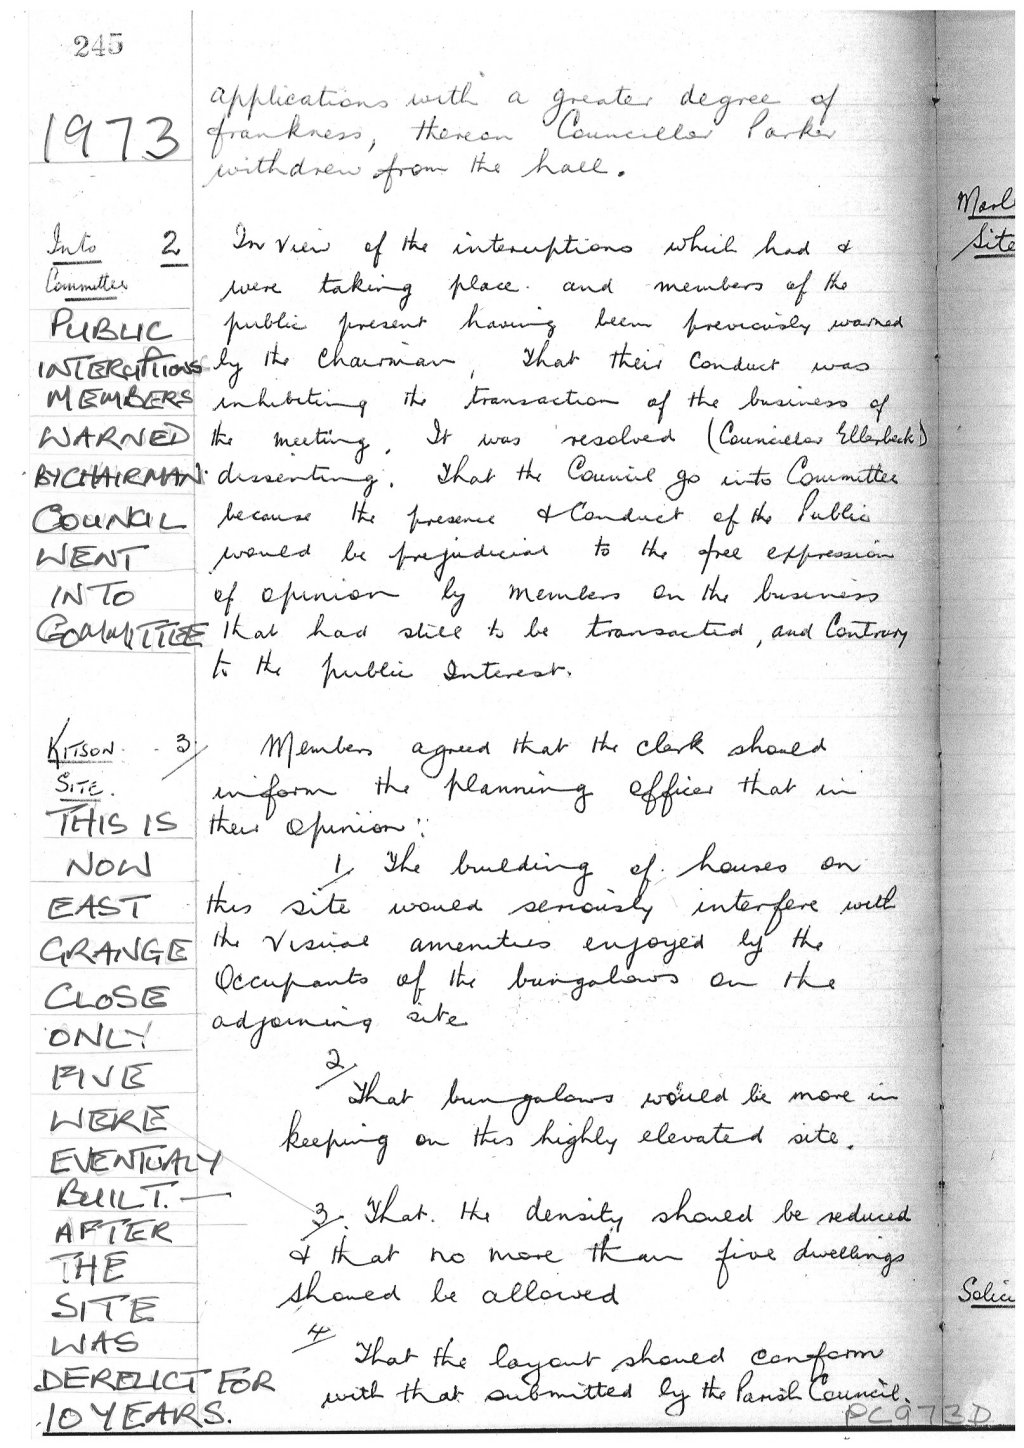 245
1973
applications with a greater degree of
frankness, thereon Councillor Parker
withdrew from the hall.
Into 2
Committee
PUBLIC
INTERUPTIONS
MEMBERS
WARNED
BY CHAIRMAN
COUNCIL
WENT
INTO
COMMITTEE
In view of the interruptions which had &
were taking place. and members of the
public present having been previously warned
by the Chairman, That their conduct was
inhibiting the transaction of the business of
the meeting, It was resolved (Councillor Ellerbeck)
dissenting. That the Council go into Committee
because the presence & Conduct of the Public
would be prejudicial to the free expression
of opinion by members on the business
that had still to be transacted, and Contrary
to the public Interest.
KITSON 3/
SITE.
THIS IS
NOW
EAST
GRANGE
CLOSE
ONLY
FIVE
WERE
EVENTUALY
BUILT. —
AFTER
THE
SITE
WAS
DERELICT FOR
10 YEARS.
Members agreed that the clerk should
inform the planning officer that in
their opinion:
1/ The building of houses on
this site would seriously interfere with
the Visual amenities enjoyed by the
Occupants of the bungalows on the
adjoining site
2/
That bungalows would be more in
keeping on this highly elevated site.
3/. That the density should be reduced
& that no more than five dwellings
should be allowed
4/
That the layout should conform
with that submitted by the Parish Council.
PC973D
Site